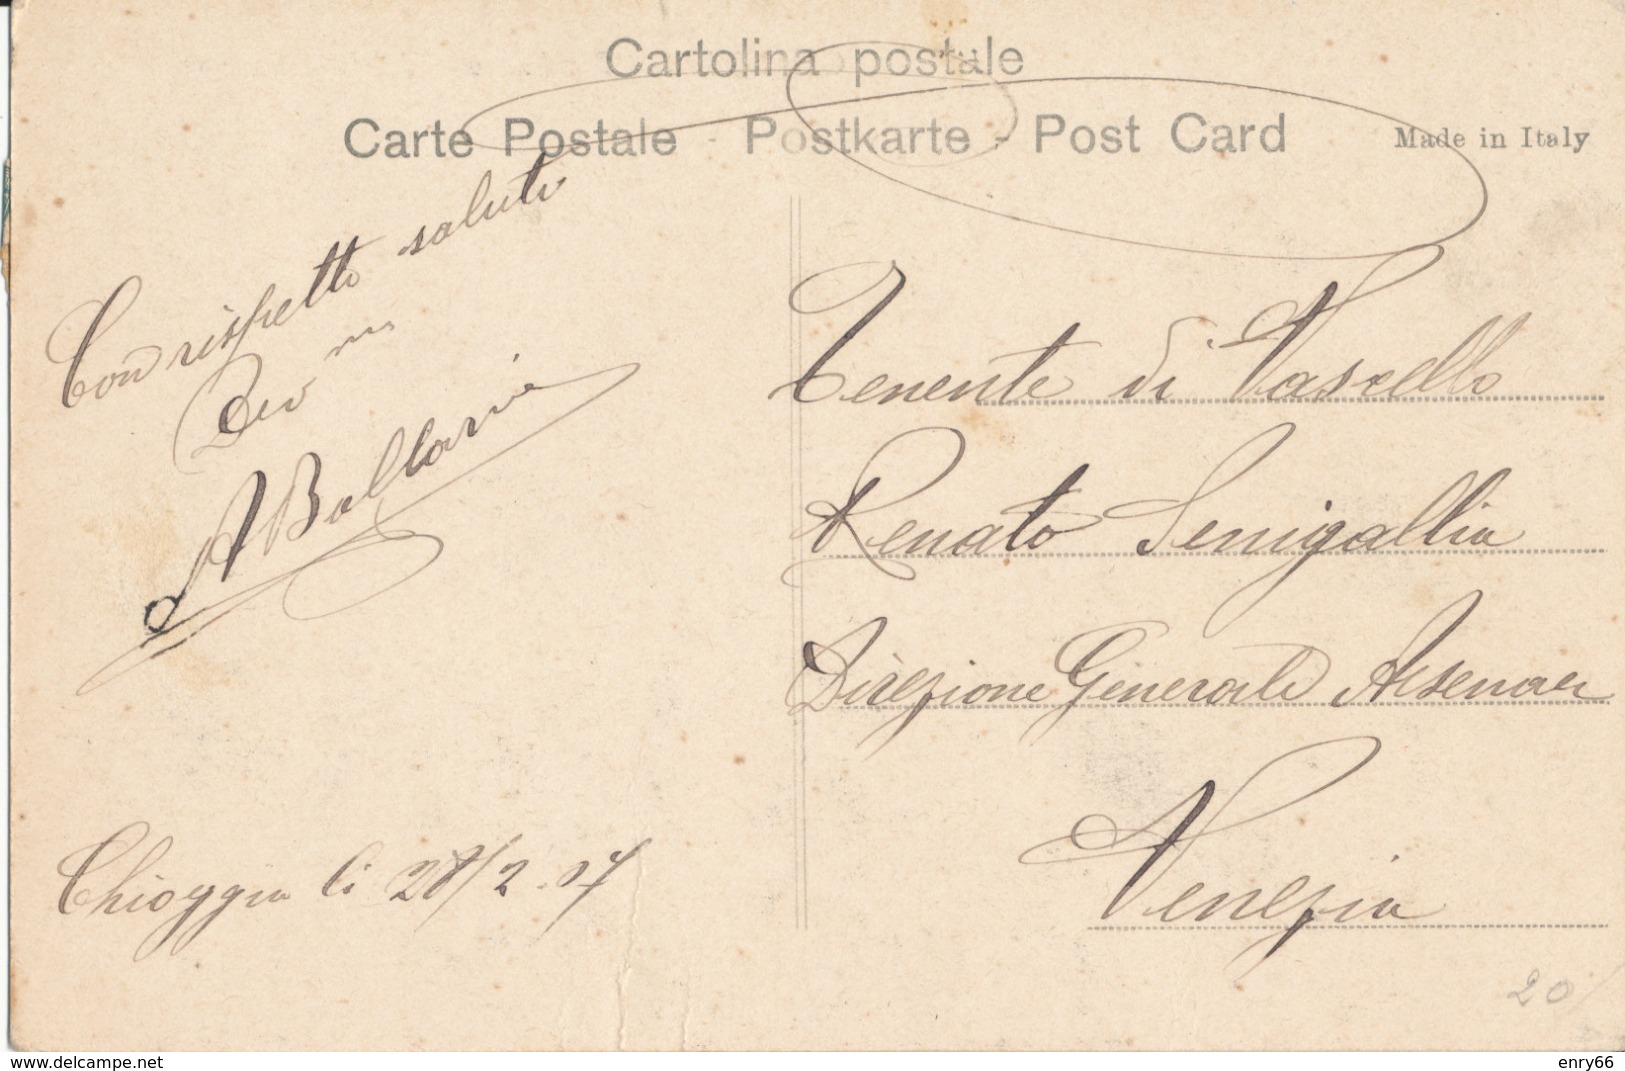 Cartolina postale
Carte Postale - Postkarte - Post Card
Made in Italy
Con rispetto saluti
Dev mo
A Ballarin
Chioggia li 28/2.17
Tenente di Vascello
Renato Senigallia
Direzione Generale Arsenale
Venezia
20
www.delcampe.net
enry66